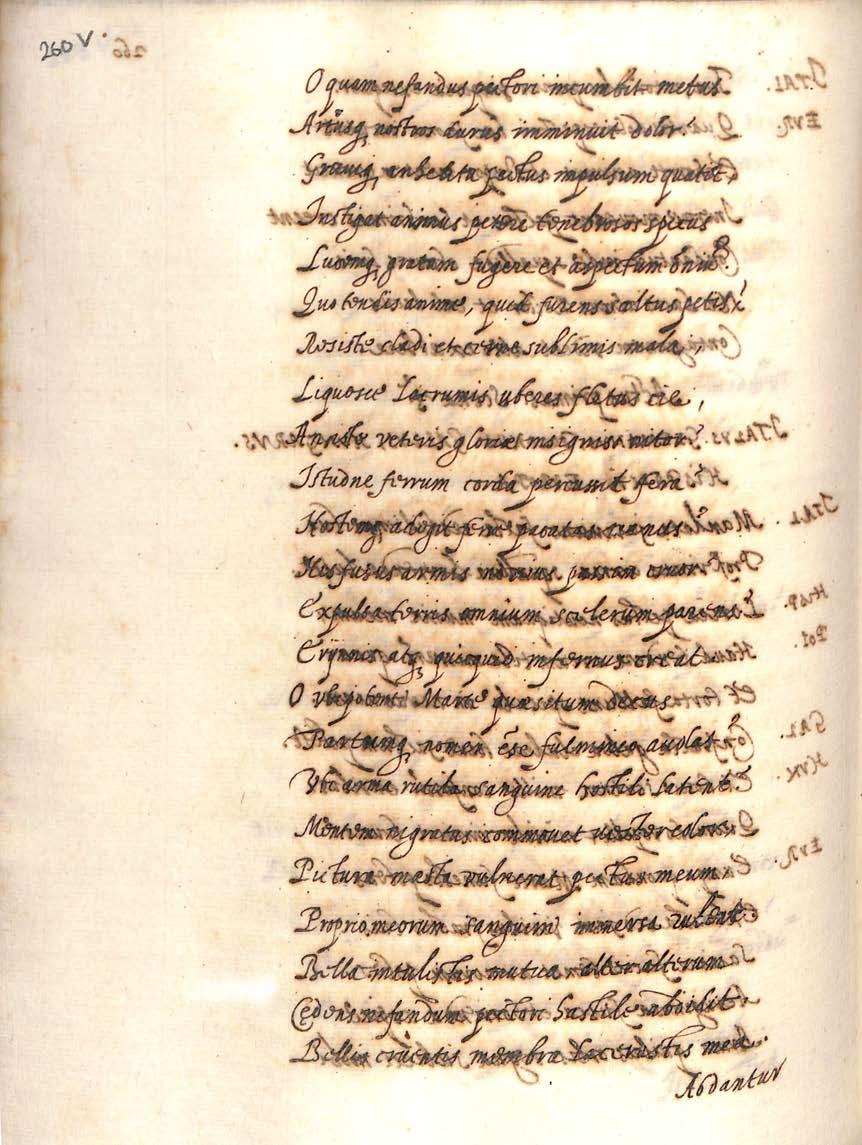 260 V
O quam nefandus pectori incumbit metus
Artusq, nostros durus imminuit dolor.
Grauiq, anhelitu pectus impulsum quatit,
Instigat animus petere tenebrosos specus
Lucemq, gratam fugere et aspectum oniu?
Quo tendis anime, quid furens saltus petis?
Resiste cladi et cerne sublimis mala,
Liquore lacrumis uberes fletus cie,
veteris gloriæ insignis nitor?
Istudne ferrum corda percussit fera?
Hostemq, adegit ferre pacatas manus?
His fusus armis noxius cruor
Expulsa terris omnium scelerum parens?
Erÿnnis atq, quicquid infernus creat
O ubi potenti Marte quæsitum decus
Partumq, nomen ese fulmineo auolat?
Vbi arma rutila sanguine hostili latent?
Mentem nigratus commouet uester color
Pictura mæsta vulnerat pectus meum
Proprio meorum sanguini immersa
Bella intulistis mutua alter alterum
Cedens nefandum pectori hastile abdidit
Bellis cruentis membra lacerastis mea.
Abdantur